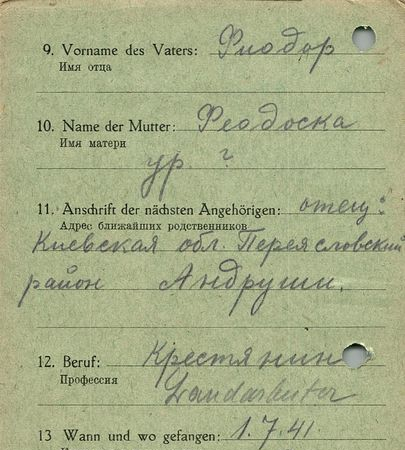 9. Vorname des Vaters: Фиодор
Имя отца
10. Name der Mutter: Феодоска
Имя матери
ур. ?
11. Anschrift der nächsten Angehörigen: отец:
Адрес ближайших родственников
Киевская обл. Переясловский
район Андруши.
12. Beruf: Крестянин
Профессия
Landarbeiter
13 Wann und wo gefangen: 1.7.41.